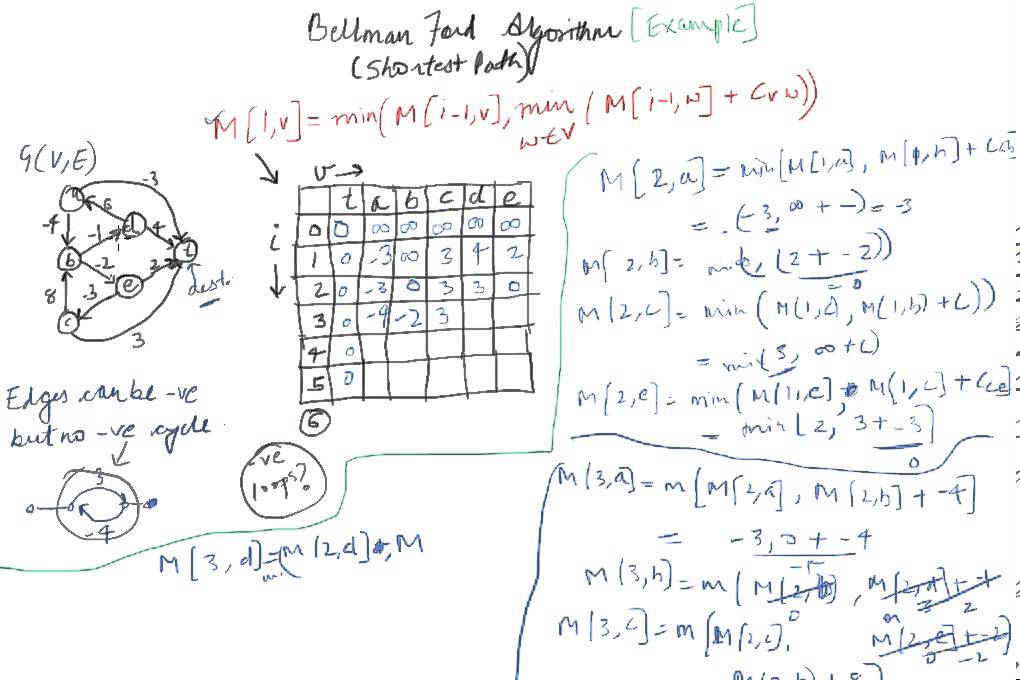 Bellman Ford Algorithm [Example]
(Shortest Path)
M[1,v] = min(M[i-1,v], min (M[i-1,w] + Cvw))
w∈V
G(V,E)
-3
a
6
-4
d
-1
4
b
t
-2
2
e
dest.
8
-3
c
3
v →
i
t a b c d e
0 0 ∞ ∞ ∞ ∞ ∞
1 0 -3 ∞ 3 4 2
2 0 -3 0 3 3 0
3 0 -4 -2 3
4 0
5 0
6
Edges can be -ve
but no -ve cycle.
3
3
-4
-ve
loops?
M[3,d] = (M[2,d], M
min
M[2,a] = min[M[1,a], M[1,b] +
= (-3, ∞ + -) = -3
M[2,b] = (2 + -2))
= 0
M[2,c] = min(M(1,c), M(1,b) + C))
= min(3, ∞ + C)
M[2,e] = min(M[1,e], M[1,c] + Cce]
= min[2, 3 + -3]
0
M[3,a] = m[M[2,a], M[2,b] + -4]
= -3, 0 + -4
M[3,b] = m(M[2,b], M[2,d] + -1
0 3 2
M[3,c] = m[M[2,c], M[2,e] + -2)
0 -2